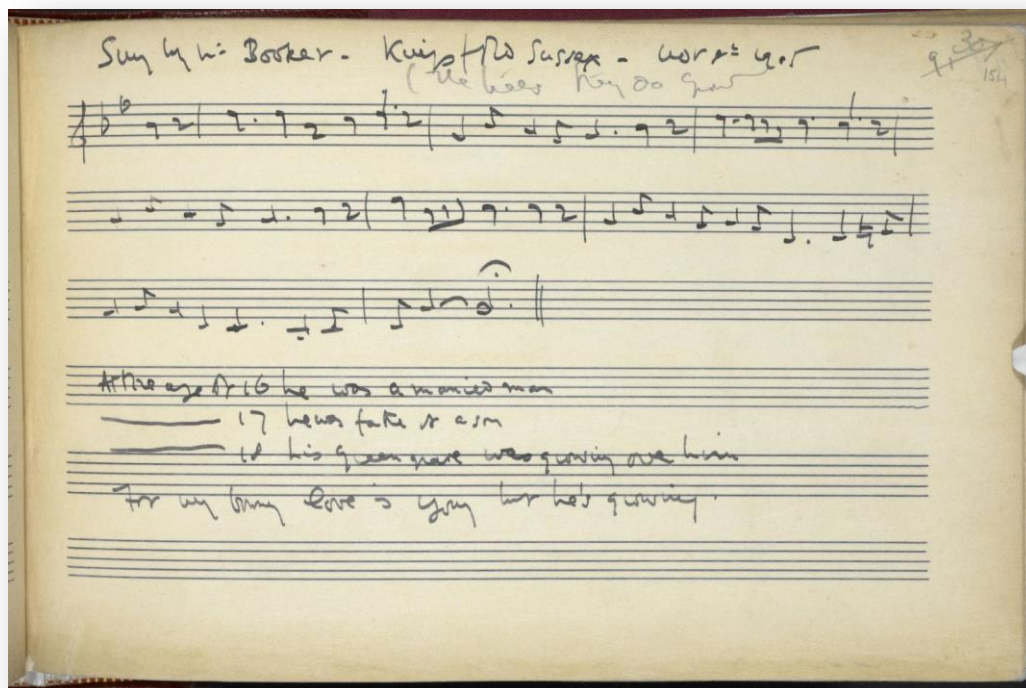 Sung by Mr Booker - Kingsfold Sussex -
(The trees they do grow
30
154
At the age of 16 he was a married man
17 he was father of a son
18 his green grave was growing over him
For my bonny love is young but he's growing.